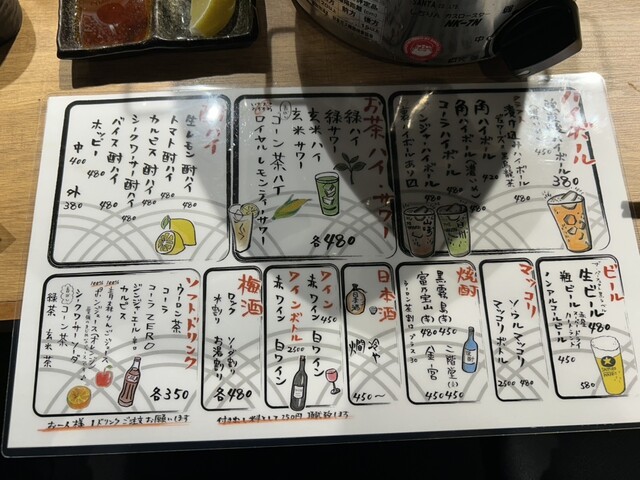 ハイボール
380
角ハイボール
コーラハイボール
ジンジャーハイボール
お茶ハイ・サワー
緑ハイ
緑サワー
玄米ハイ
玄米サワー
コーン茶ハイ
ロイヤルレモンティーサワー
各480
酎ハイ
生レモン酎ハイ 480
トマト酎ハイ 480
カルピス酎ハイ 480
シークワーサー酎ハイ 480
バイス酎ハイ 480
ホッピー 480
中 400
外 380
ビール
生ビール 480
瓶ビール
ノンアルコールビール 450
580
マッコリ
ソウルマッコリ 480
マッコリボトル 2500
焼酎
黒霧島(芋) 480
富乃宝山(芋) 450
二階堂(麦) 450
金宮 450
日本酒
冷や
燗
450〜
ワイン
赤ワイン 450
白ワイン
ワインボトル
赤ワイン 2500
白ワイン
梅酒
ロック
水割り
ソーダ割り
お湯割り
各480
ソフトドリンク
ウーロン茶
コーラ
コーラZERO
ジンジャエール 辛口
カルピス
シークワーサーソーダ
コーン茶
緑茶
玄米茶
各350
お一人様1ドリンクご注文お願いします
付きだし料として250円頂戴します